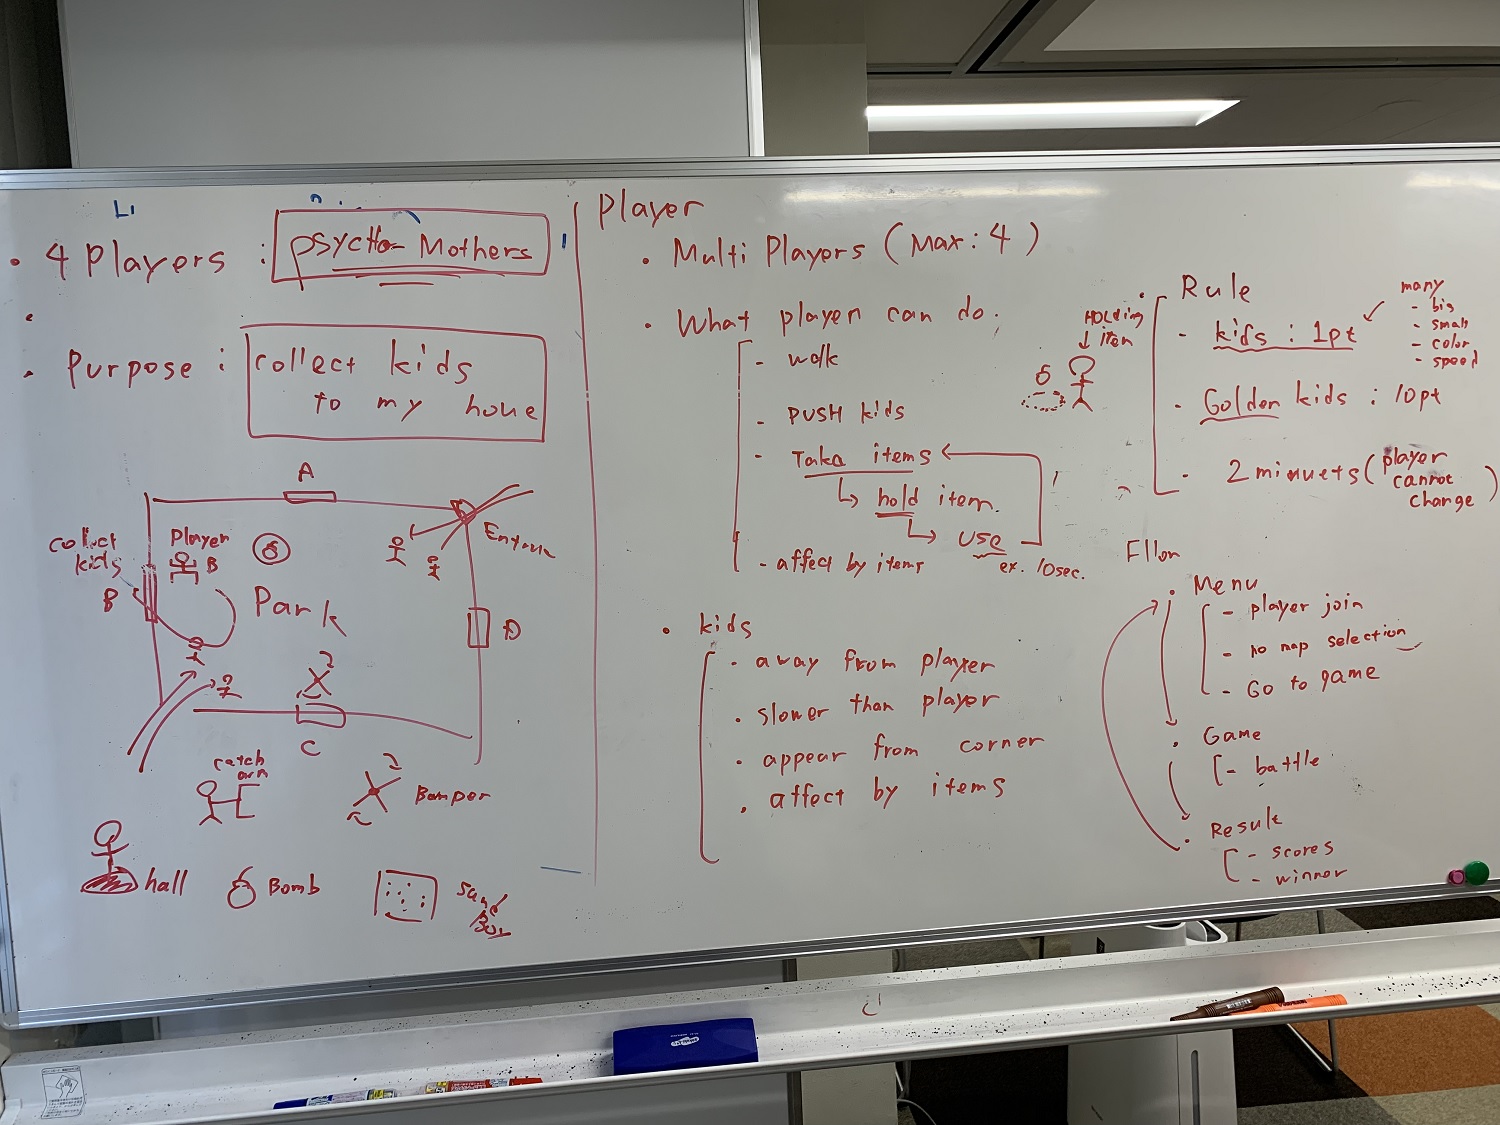 • 4 Players : Psycho-Mothers
• Purpose : collect kids
to my home
A
collect
kids
Player
B
B
Park
D
C
catch
arm
Bamper
hall
Bomb
Player
• Multi Players (Max: 4)
• What player can do.
- walk
- PUSH kids
- Take items
↳ hold item.
↳ use
ex. 10sec.
- affect by items
• kids
• away from player
• slower than player
• appear from corner
• affect by items
HOLDING
↓ item
Rule
- kids : 1pt
many
- big
- small
- color
- speed
- Golden kids : 10pt
- 2 minuets (player
cannot
change)
• Menu
- player join
- no map selection
- Go to game
• Game
- battle
• Result
- scores
- winner